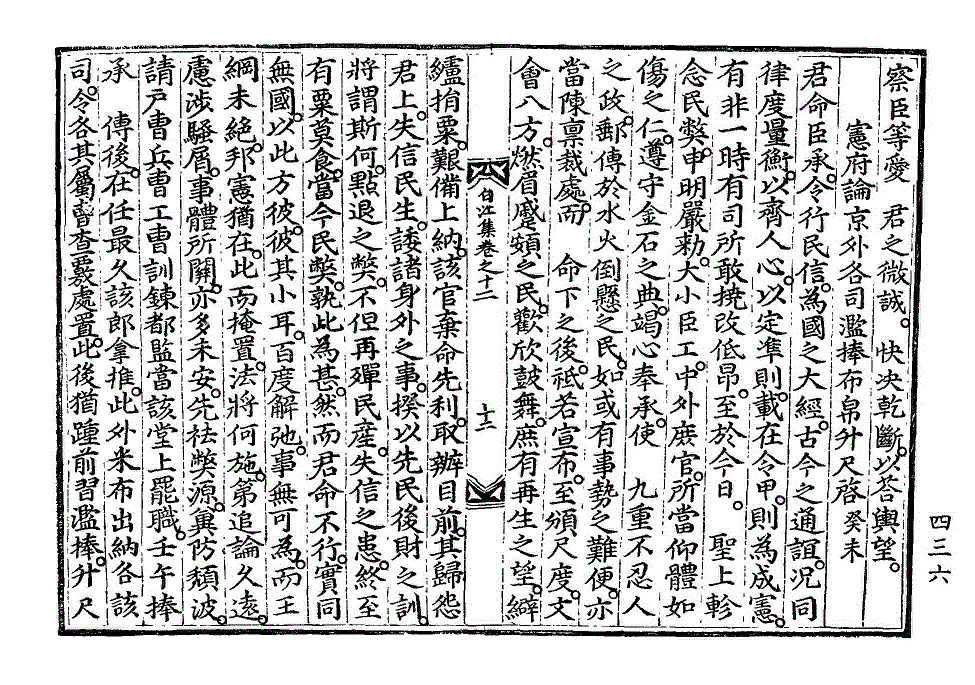 察臣等愛　君之微誠。快决乾斷。以答輿望。
憲府論京外各司濫捧布帛升尺啓 癸未
君命臣承。令行民信。為國之大經。古今之通誼。况同
律度量衡。以齊人心。以定凖則。載在令甲。則為成憲。
有非一時有司所敢撓改低昂。至於今日。　聖上軫
念民弊。申明嚴勑。大小臣工。中外庶官。所當仰體如
傷之仁。遵守金石之典。竭心奉承。使　九重不忍人
之政。郵傳於水火倒懸之民。如或有事勢之難便。亦
當陳稟裁處。而　命下之後。祗若宣布。至頒尺度。文
會八方。燃眉蹙頞之民。歡欣鼓舞。庶有再生之望。緝
白江集卷之十二
十二
纑㨒粟。艱備上納。該官棄命先利。取辦目前。其歸怨
君上。失信民生。諉諸身外之事。揆以先民後財之訓。
將謂斯何。點退之弊。不但再殫民産。失信之患。終至
有粟莫食。當今民弊。孰此為甚。然而君命不行。實同
無國。以此方彼。彼其小耳。百度解弛。事無可為。而王
綱未絶。邦憲猶在。此而掩置。法將何施。第追論久遠。
慮涉騷屑。事體所關。亦多未安。先祛弊源。冀防頹波。
請戶曹兵曹工曹訓鍊都監當該堂上罷職。壬午捧
承　傳後。在任最久該郎拿推。此外米布出納各該
司。令各其屬曹查覈處置。此後猶踵前習。濫捧升尺
四三六